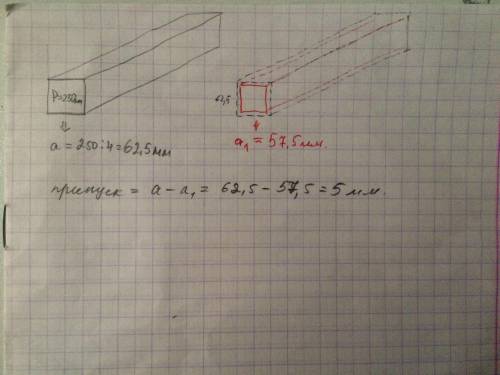 P=250мм
62,5
a = 250:4 = 62,5 мм
a₁ = 57,5 мм.
припуск = a - a₁ = 62,5 - 57,5 = 5 мм.